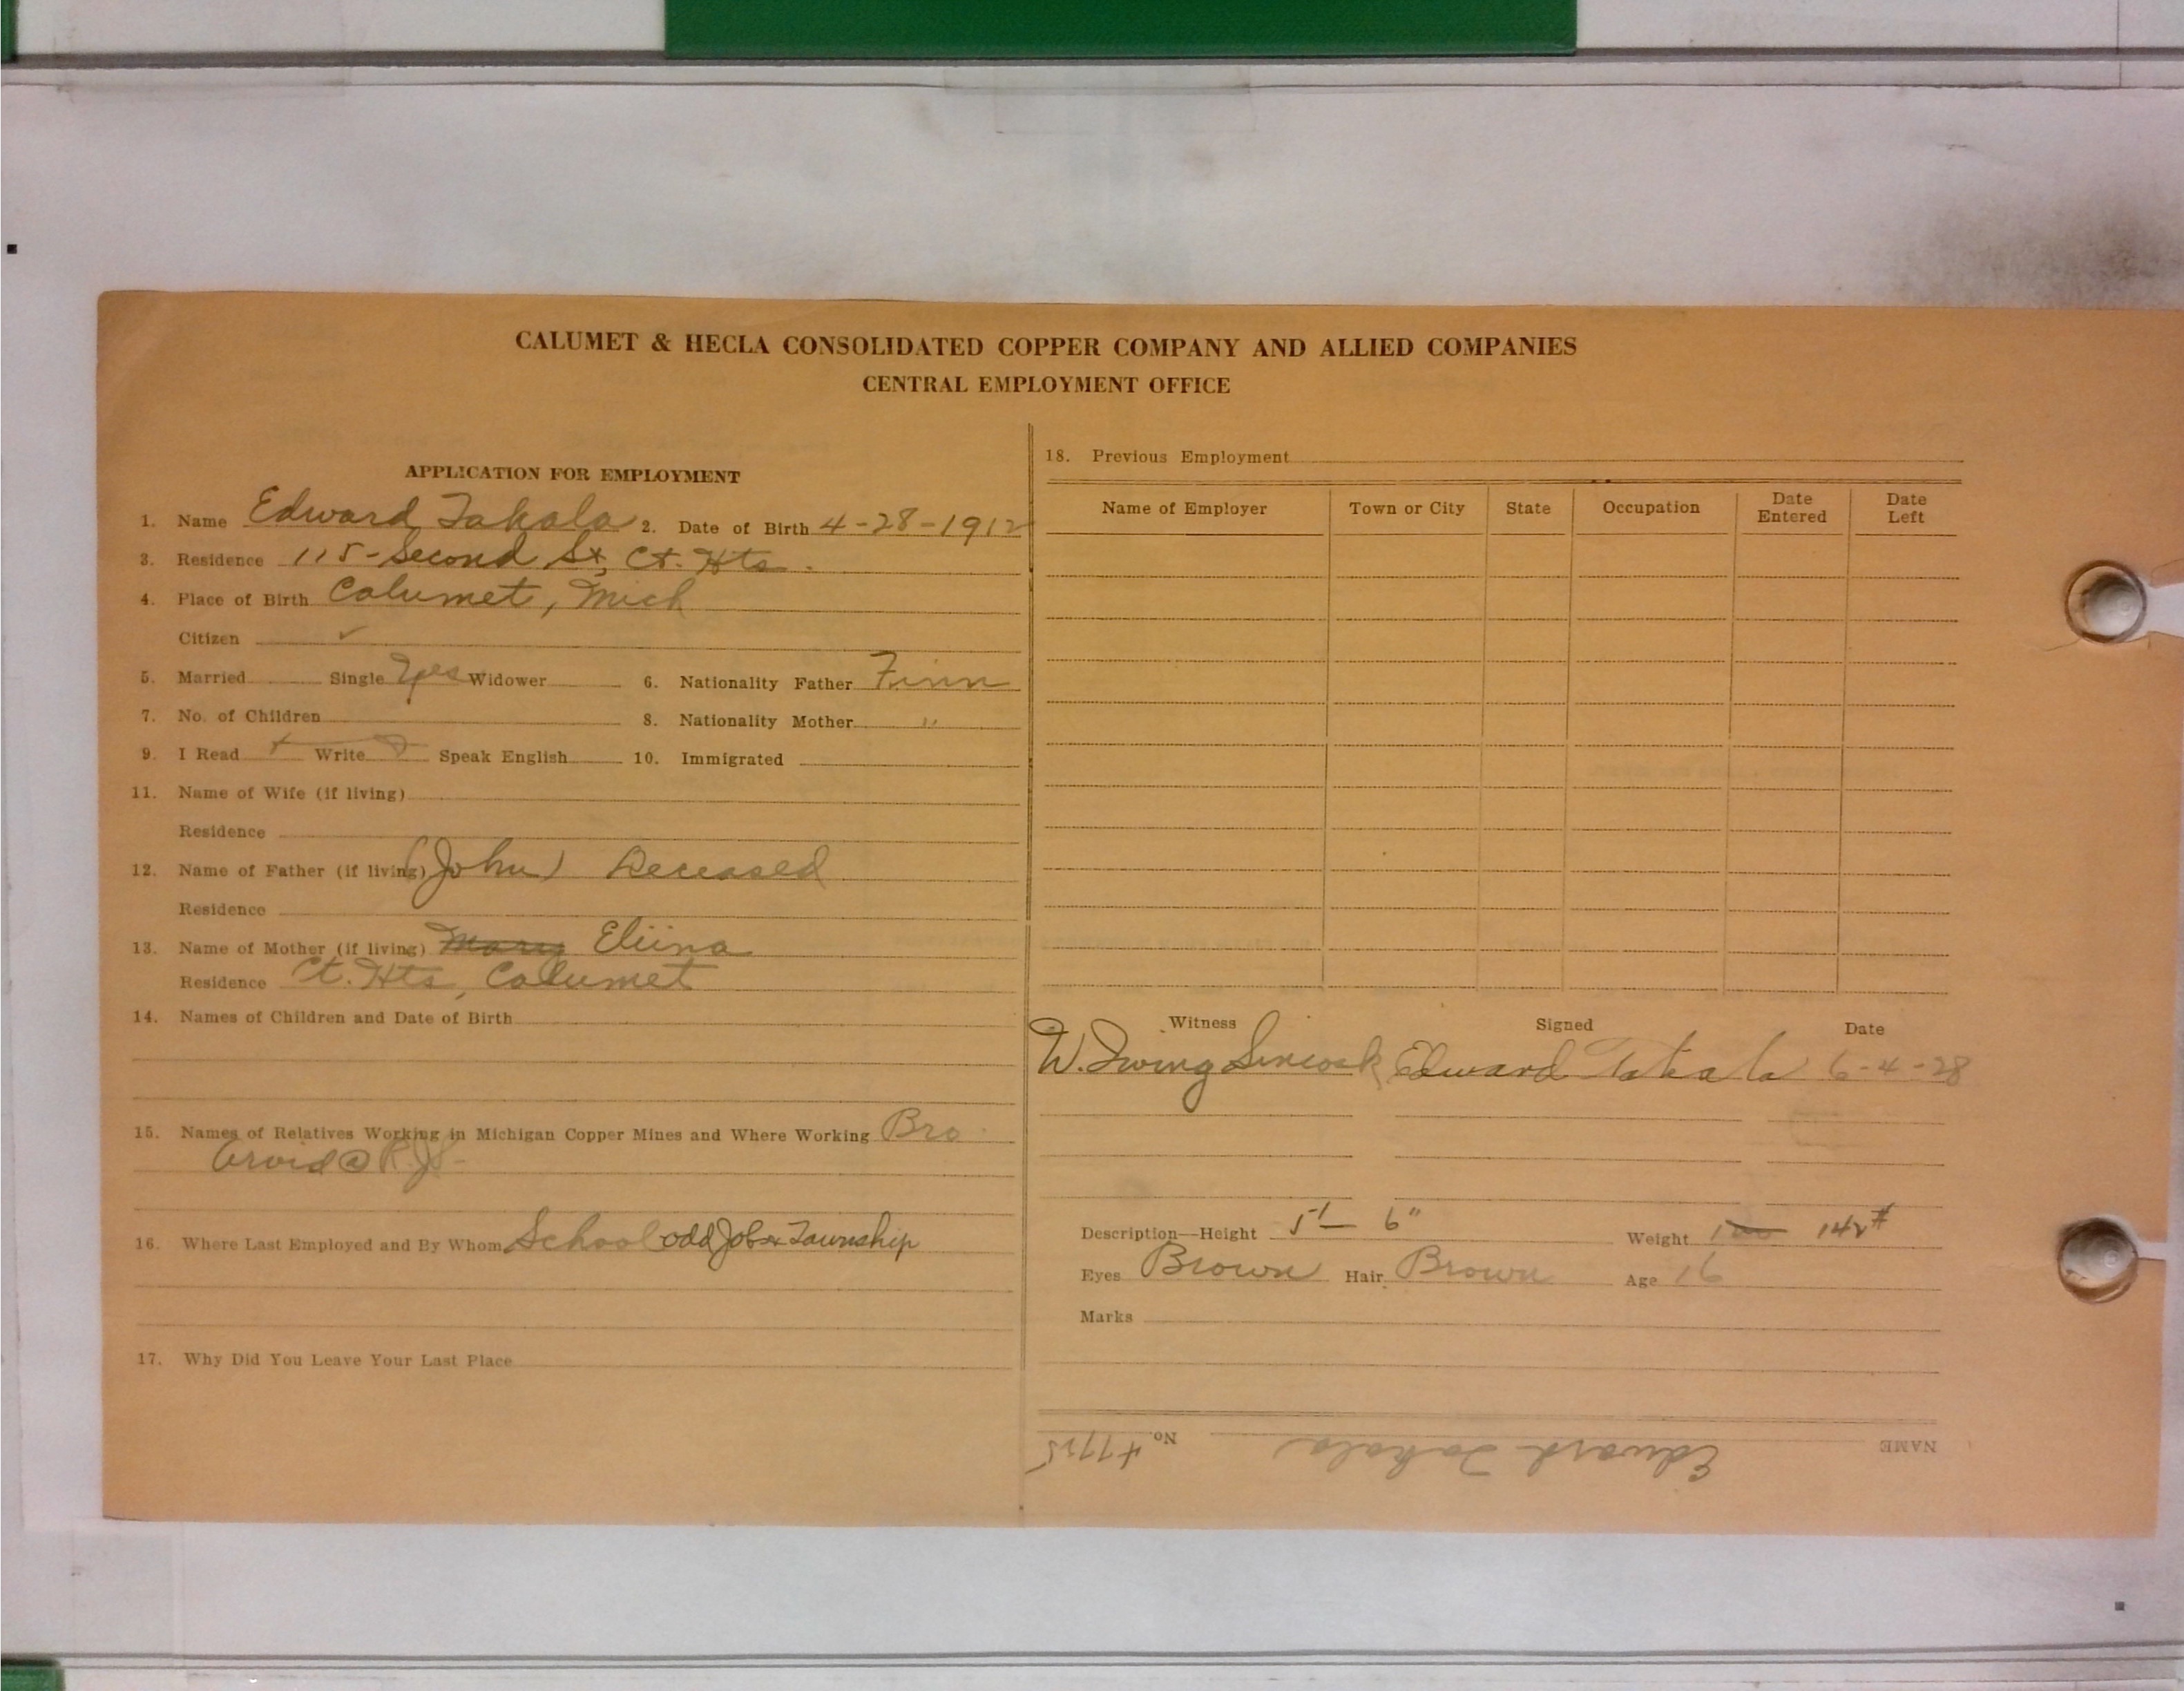 CALUMET & HECLA CONSOLIDATED COPPER COMPANY AND ALLIED COMPANIES
CENTRAL EMPLOYMENT OFFICE
APPLICATION FOR EMPLOYMENT
1. Name Edward Takala 2. Date of Birth 4-28-1912
3. Residence 115-Second St, Ct. Hts.
4. Place of Birth Calumet, Mich
Citizen ✓
5. Married Single Yes Widower 6. Nationality Father Finn
7. No. of Children 8. Nationality Mother "
9. I Read Write Speak English 10. Immigrated
11. Name of Wife (if living)
Residence
12. Name of Father (if living) (John) Deceased
Residence
13. Name of Mother (if living) Mary Eliina
Residence Ct. Hts, Calumet
14. Names of Children and Date of Birth
15. Names of Relatives Working in Michigan Copper Mines and Where Working Bro
Arvid @
16. Where Last Employed and By Whom School odd Jobs Township
17. Why Did You Leave Your Last Place
18. Previous Employment
Name of Employer Town or City State Occupation Date Entered Date Left
Witness Signed Date
W. Irving Sincock Edward Takala 6-4-28
Description—Height 5' 6" Weight 142#
Eyes Brown Hair Brown Age 16
Marks
NAME Edward Takala No.